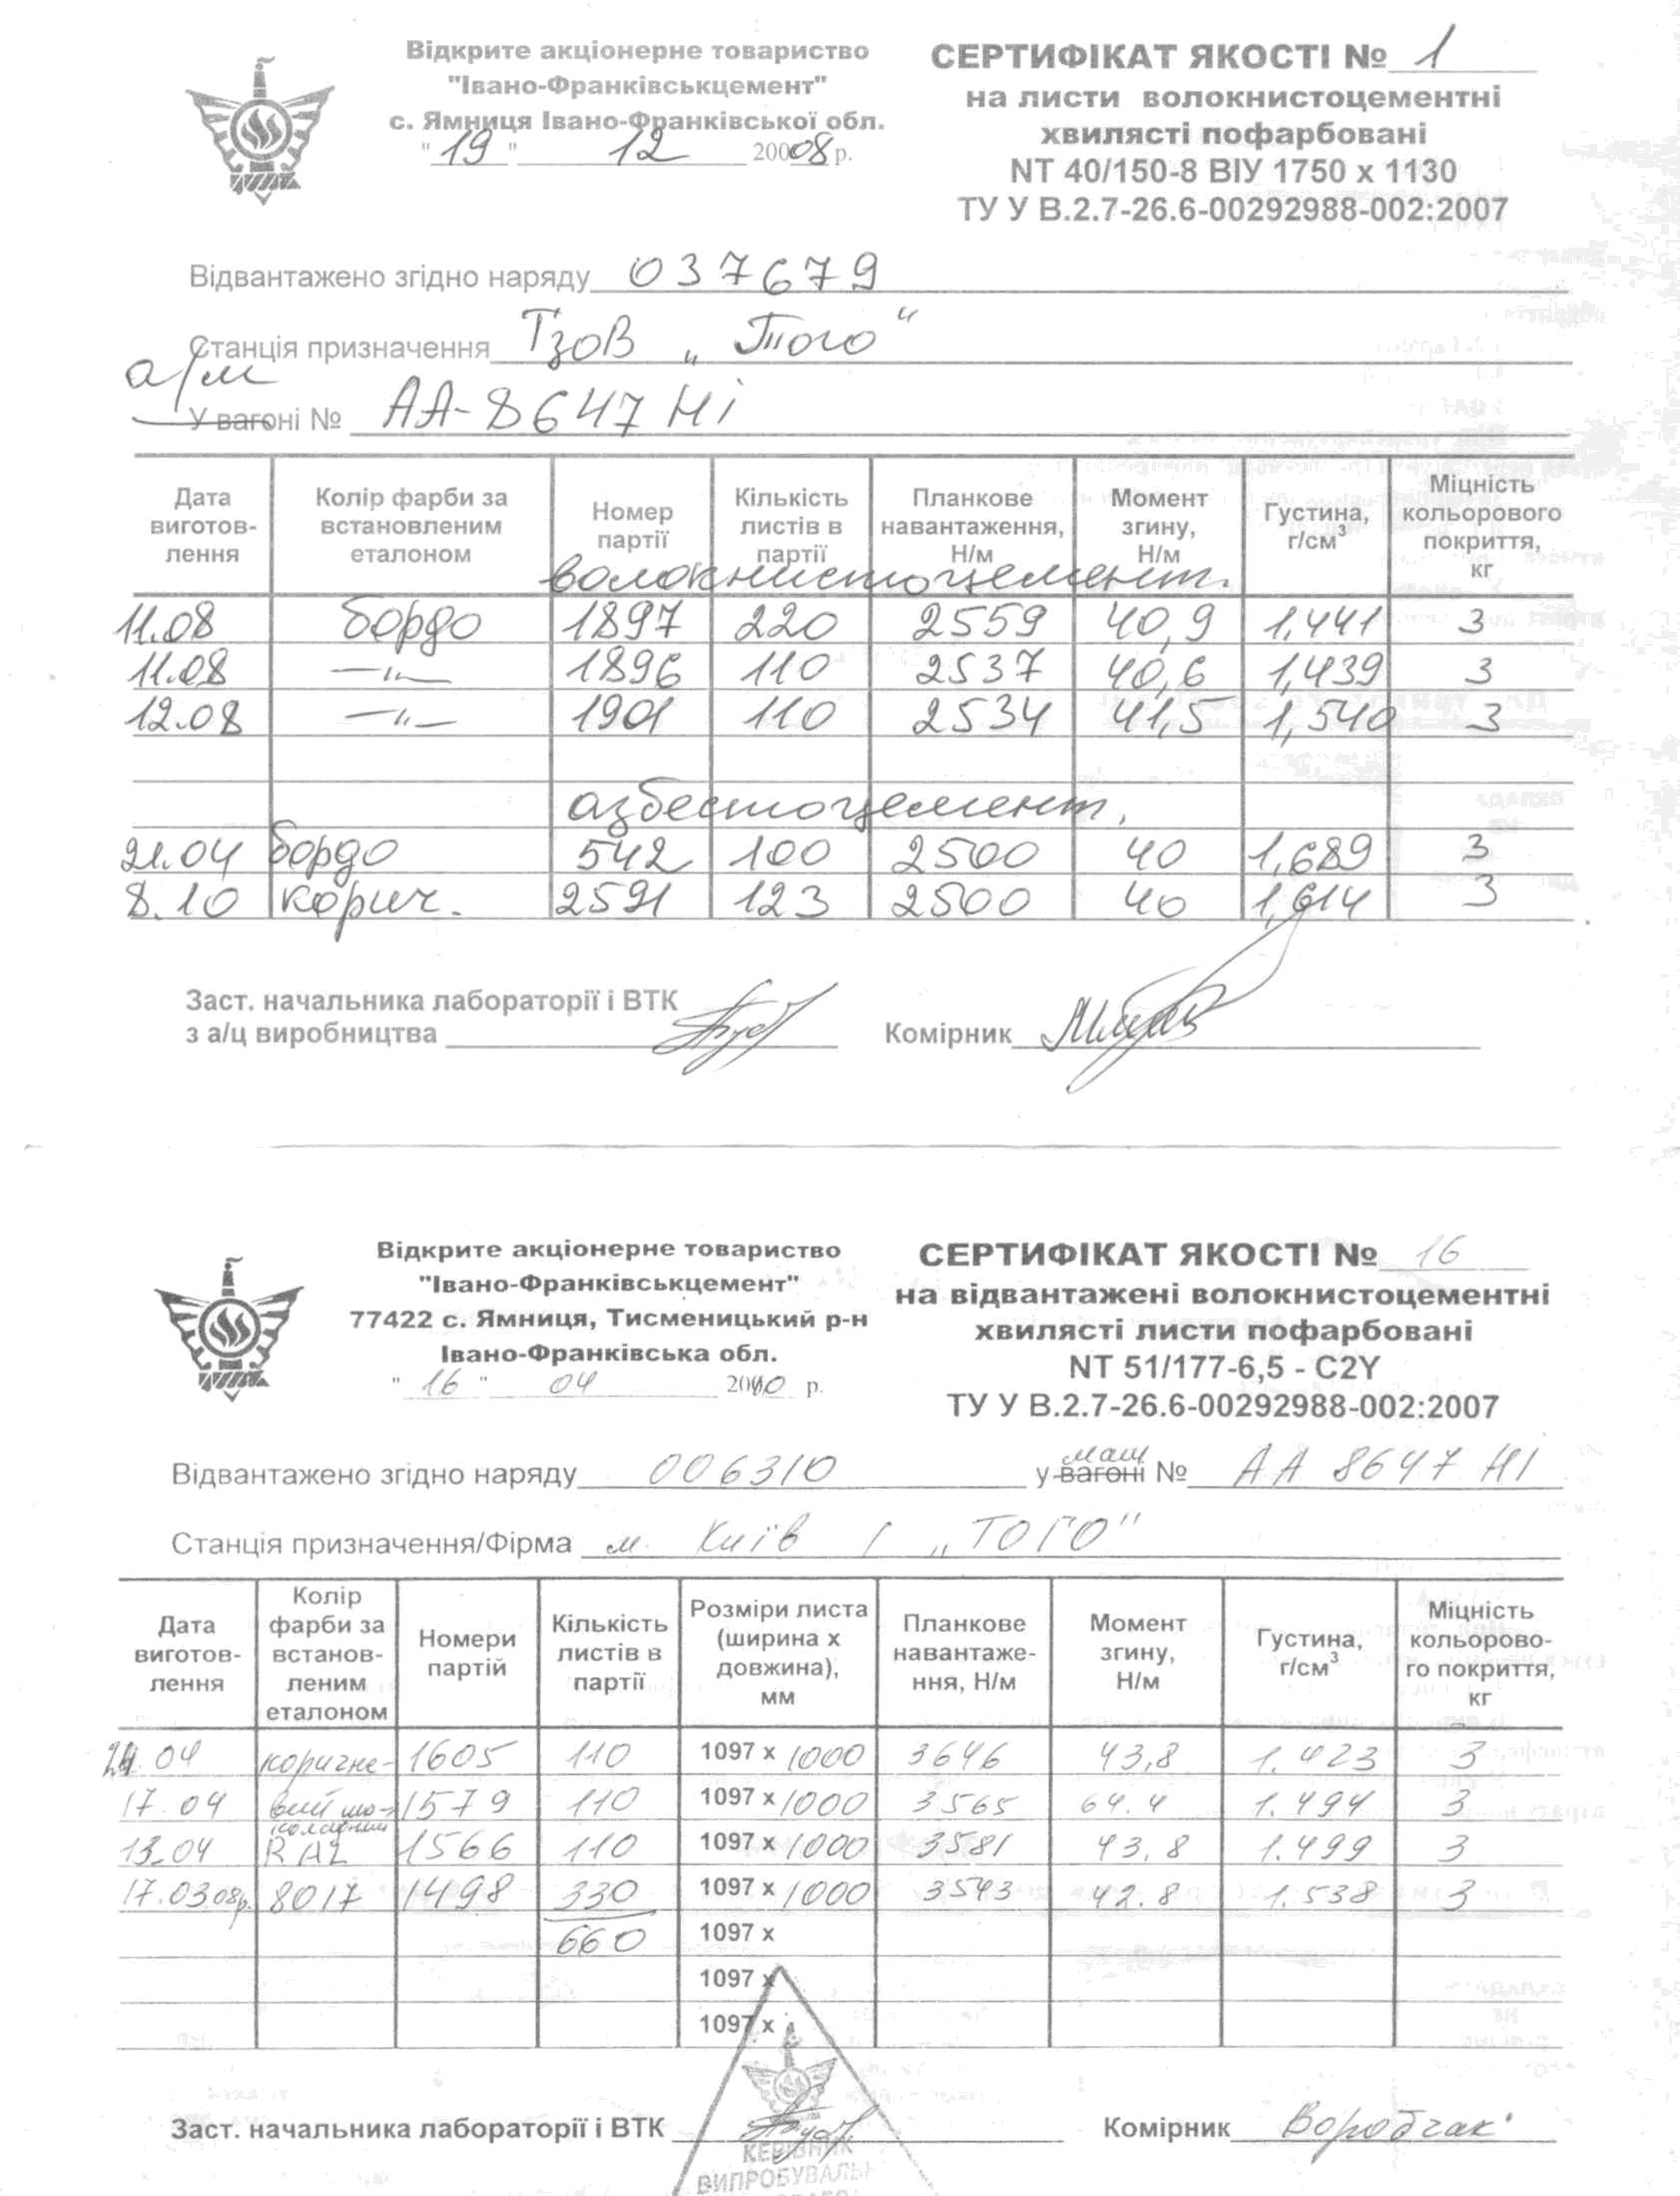 Відкрите акціонерне товариство
"Івано-Франківськцемент"
с. Ямниця Івано-Франківської обл.
"19" 12 2008 р.
СЕРТИФІКАТ ЯКОСТІ № 1
на листи волокнистоцементні
хвилясті пофарбовані
NT 40/150-8 ВІУ 1750 х 1130
ТУ У В.2.7-26.6-00292988-002:2007
Відвантажено згідно наряду 037679
Станція призначення ТзоВ „Того"
а/м
У вагоні № АА-8647 НІ
Дата виготов-лення | Колір фарби за встановленим еталоном | Номер партії | Кількість листів в партії | Планкове навантаження, Н/м | Момент згину, Н/м | Густина, г/см3 | Міцність кольорового покриття, кг
волокнистоцемент.
11.08 бордо 1897 220 2559 40,9 1,441 3
11.08 —"— 1896 110 2537 40,6 1,439 3
12.08 —"— 1901 110 2534 41,5 1,540 3
азбестоцемент.
21.04 бордо 542 100 2500 40 1,689 3
8.10 корич. 2591 123 2500 40 1,614 3
Заст. начальника лабораторії і ВТК
з а/ц виробництва Комірник
Відкрите акціонерне товариство
"Івано-Франківськцемент"
77422 с. Ямниця, Тисменицький р-н
Івано-Франківська обл.
"16" 04 2010 р.
СЕРТИФІКАТ ЯКОСТІ № 16
на відвантажені волокнистоцементні
хвилясті листи пофарбовані
NT 51/177-6,5 - C2Y
ТУ У В.2.7-26.6-00292988-002:2007
Відвантажено згідно наряду 006310 у вагоні маш № АА 8647 НІ
Станція призначення/Фірма м. Київ / „ТОГО"
Дата виготов-лення | Колір фарби за встанов-леним еталоном | Номери партій | Кількість листів в партії | Розміри листа (ширина х довжина), мм | Планкове навантаже-ння, Н/м | Момент згину, Н/м | Густина, г/см3 | Міцність кольорово-го покриття, кг
21.04 коричне- 1605 110 1097 х 1000 3646 43,8 1.423 3
17.04 вий шо- 1579 110 1097 х 1000 3565 64.4 1.494 3
коладний
13.04 RAL 1566 110 1097 х 1000 3581 43,8 1.499 3
17.03.08р. 8017 1498 330 1097 х 1000 3543 42.8 1.538 3
660 1097 х
1097 х
1097 х
Заст. начальника лабораторії і ВТК Комірник
КЕРІВНИК
ВИПРОБУВАЛЬ